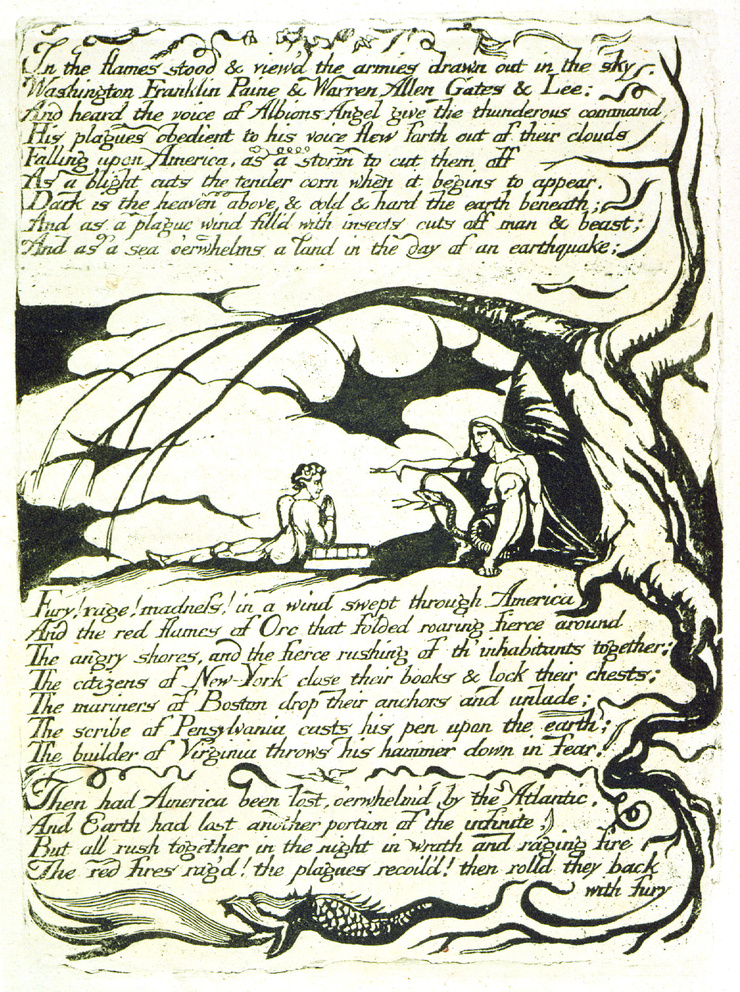 In the flames stood & view'd the armies drawn out in the sky
Washington Franklin Paine & Warren Allen Gates & Lee:
And heard the voice of Albions Angel give the thunderous command:
His plagues obedient to his voice flew forth out of their clouds
Falling upon America, as a storm to cut them off
As a blight cuts the tender corn when it begins to appear.
Dark is the heaven above, & cold & hard the earth beneath;
And as a plague wind fill'd with insects cuts off man & beast;
And as a sea o'erwhelms a land in the day of an earthquake;
Fury! rage! madness! in a wind swept through America
And the red flames of Orc that folded roaring fierce around
The angry shores, and the fierce rushing of th' inhabitants together:
The citizens of New-York close their books & lock their chests;
The mariners of Boston drop their anchors and unlade;
The scribe of Pensylvania casts his pen upon the earth;
The builder of Virginia throws his hammer down in fear.
Then had America been lost, o'erwhelm'd by the Atlantic,
And Earth had lost another portion of the infinite,
But all rush together in the night in wrath and raging fire
The red fires rag'd! the plagues recoil'd! then rolld they back
with fury